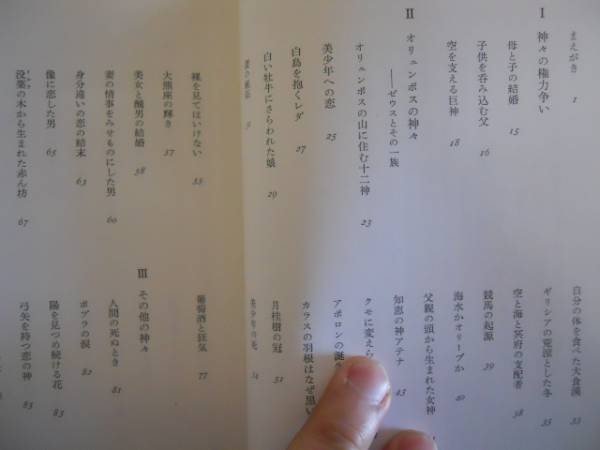 まえがき 1
I 神々の権力争い
母と子の結婚 15
子供を呑み込む父 16
空を支える巨神 18
II オリュンポスの神々
――ゼウスとその一族
オリュンポスの山に住む十二神 23
美少年への恋 25
白鳥を抱くレダ 27
白い牡牛にさらわれた娘 29
自分の体を食べた大食漢 33
ギリシアの荒涼とした冬 35
空と海と冥府の支配者 38
競馬の起源 39
海水かオリーブか 40
父親の頭から生まれた女神
知恵の神アテナ 43
クモに変えら
アポロンの誕
カラスの羽根はなぜ黒い
月桂樹の冠 51
美少年の死 54
裸を見てはいけない 55
大熊座の輝き 57
美女と醜男の結婚 58
妻の情事をみせものにした男 60
身分違いの恋の結末 63
像に恋した男 65
没薬の木から生まれた赤ん坊 67
葡萄酒と狂気 77
III その他の神々
人間の死ぬとき 81
ポプラの涙 82
陽を見つめ続ける花 83
弓矢を持つ恋の神 85